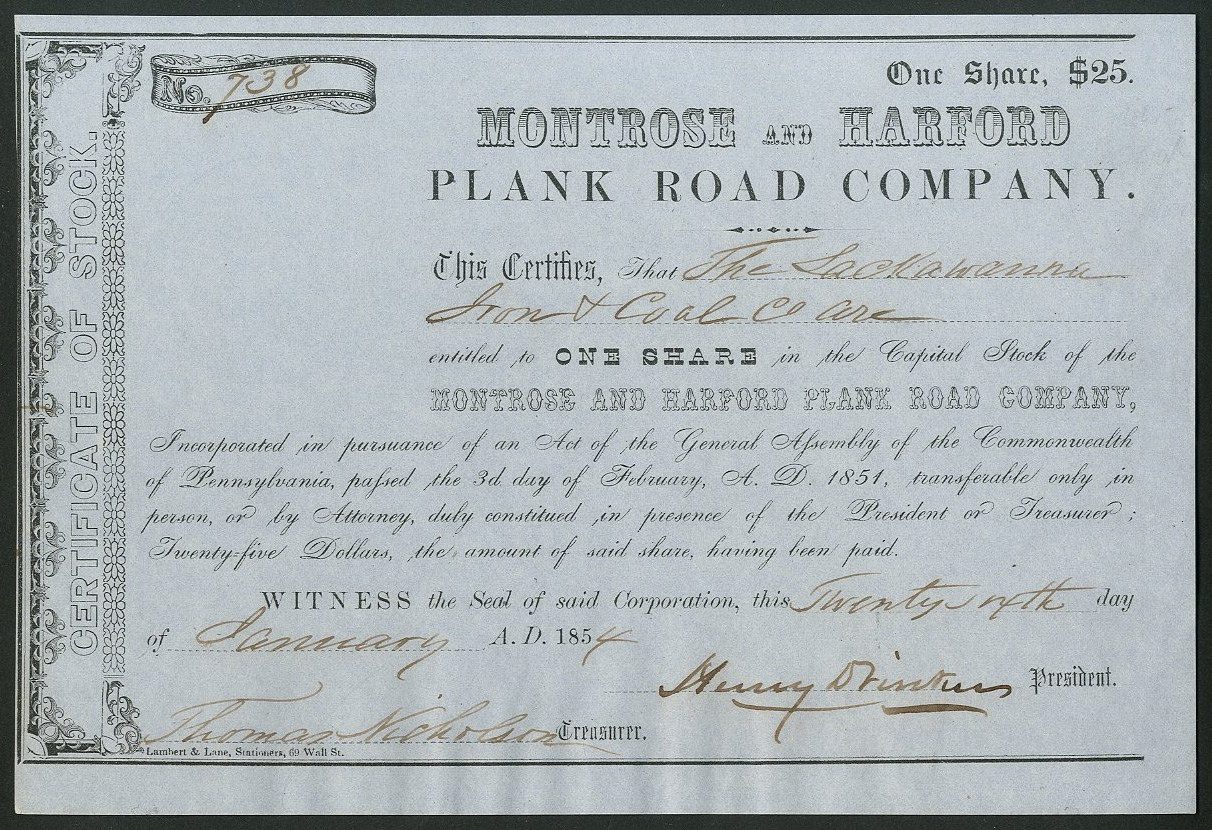 No. 738
One Share, $25.
MONTROSE AND HARFORD
PLANK ROAD COMPANY.
CERTIFICATE OF STOCK.
This Certifies, That The Lackawanna
Iron & Coal Co are
entitled to ONE SHARE in the Capital Stock of the
MONTROSE AND HARFORD PLANK ROAD COMPANY,
Incorporated in pursuance of an Act of the General Assembly of the Commonwealth
of Pennsylvania, passed the 3d day of February, A. D. 1851, transferable only in
person, or by Attorney, duly constitued in presence of the President or Treasurer;
Twenty-five Dollars, the amount of said share, having been paid.
WITNESS the Seal of said Corporation, this Twenty sixth day
of January A. D. 1854
Henry Drinker President.
Thomas Nicholson Treasurer.
Lambert & Lane, Stationers, 69 Wall St.